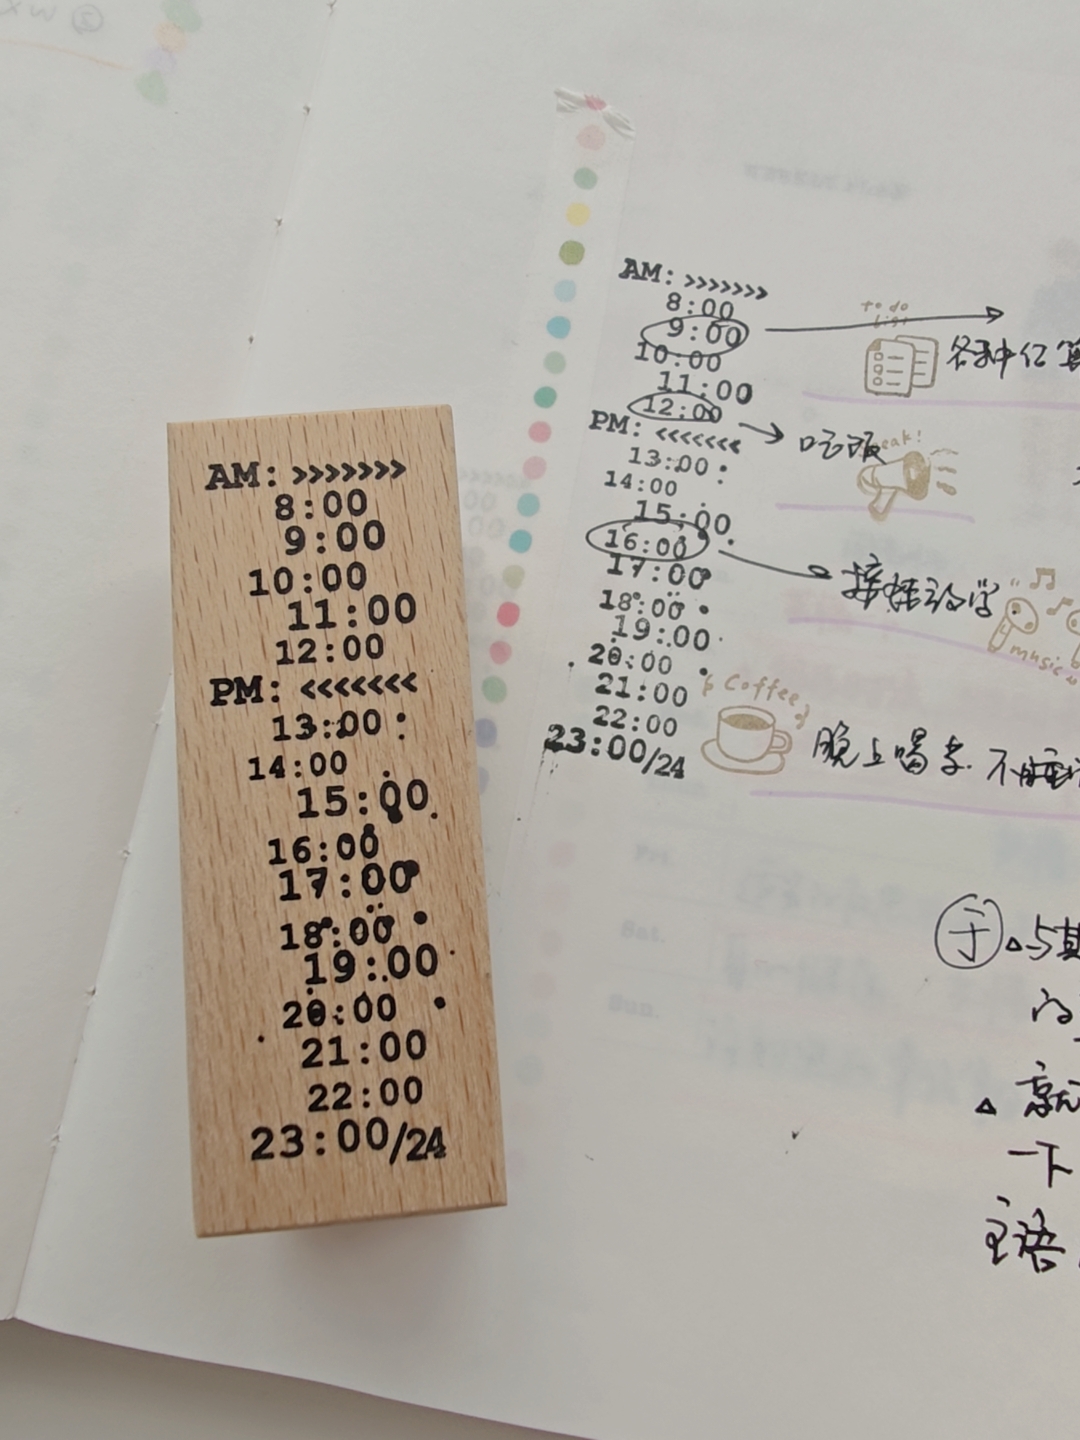 AM: >>>>>>>
8:00
9:00
10:00
11:00
12:00
PM: <<<<<<<
13:00
14:00
15:00
16:00
17:00
18:00
19:00
20:00
21:00
22:00
23:00/24
AM: >>>>>>>
8:00
9:00
10:00
11:00
12:00
PM: <<<<<<<
13:00
14:00
15:00
16:00
17:00
18:00
19:00
20:00
21:00
22:00
23:00/24
to do
list
各种
吃饭
放学
music
Coffee
晚上喝茶 不睡
Fri.
Sat.
Sun.
于 与其
的
就
一下
主语